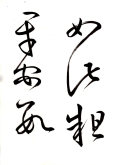 如此粗
平安數